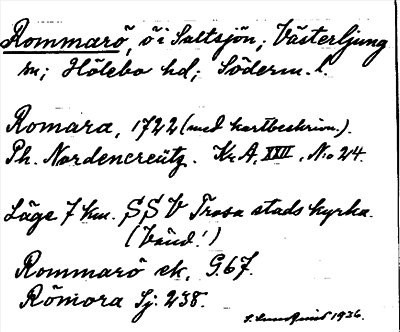 Rommarö, ö i Saltsjön, Västerljung
sn; Hölebo hd; Söderm. l.
Romara, 1722 (med kartbeskrivn.).
Ph. Nordencreütz. Kr. A, XXII, No 24.
Läge 7 km. SSV Trosa stads kyrka.
(Vänd!)
Rommarö ek. G.67.
Römora Sj: 238.
S. Lundquist 1936.